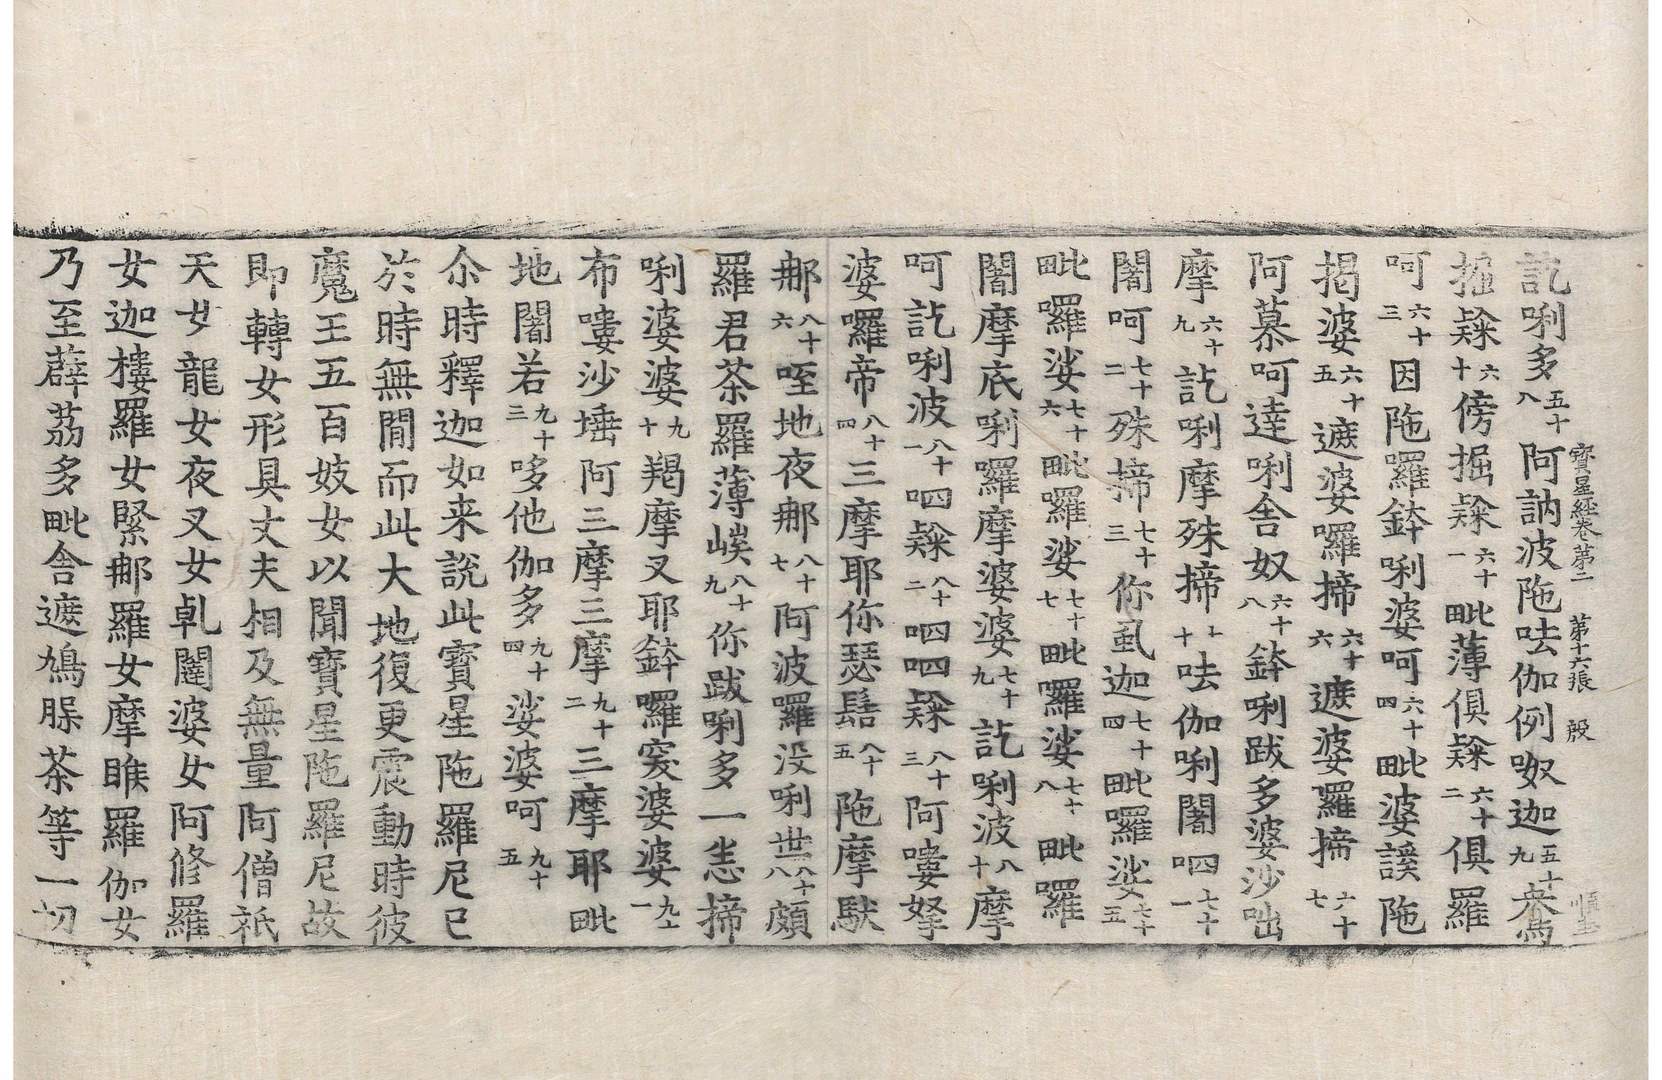 寶星經卷第二　第十六張　殷
訖唎多五十八阿訥波陁呿伽例呶迦五十九
掘𣣋六十傍掘𣣋六十一毗薄俱𣣋六十二俱羅
呵六十三因陁羅鉢唎婆呵六十四毗婆謑陁
揭婆六十五遮婆囉揥六十六遮婆囉揥六十七
阿慕呵達唎舍奴六十八鉢唎跋多婆沙咄
摩六十九訖唎摩殊揥七十呿伽唎闇呬七十一
闇呵七十二殊揥七十三你虱迦七十四毗囉娑七十五
毗囉娑七十六毗囉娑七十七毗囉娑七十八毗囉
闇摩底唎囉摩婆婆七十九訖唎波八十摩
呵訖唎波八十一呬𣣋八十二呬呬𣣋八十三阿嘍拏
婆囉帝八十四三摩耶你瑟㗌八十五陁摩馱
那八十六咥地夜那八十七阿波囉没唎世八十八頗
羅君茶羅薄㟴八十九你跋唎多一恙揥
唎婆婆九十羯摩叉耶鉢囉突婆婆九十一
布嘍沙埵阿三摩三摩九十二三摩耶毗
地闍若九十三哆他伽多九十四娑婆呵九十五
尒時釋迦如来說此寶星陁羅尼已
於時無閒而此大地復更震動時彼
魔王五百妓女以聞寶星陁羅尼故
即轉女形具丈夫相及無量阿僧祇
天女龍女夜叉女乹闥婆女阿修羅
女迦樓羅女緊那羅女摩睺羅伽女
乃至薜荔多毗舍遮鳩腜茶等一切